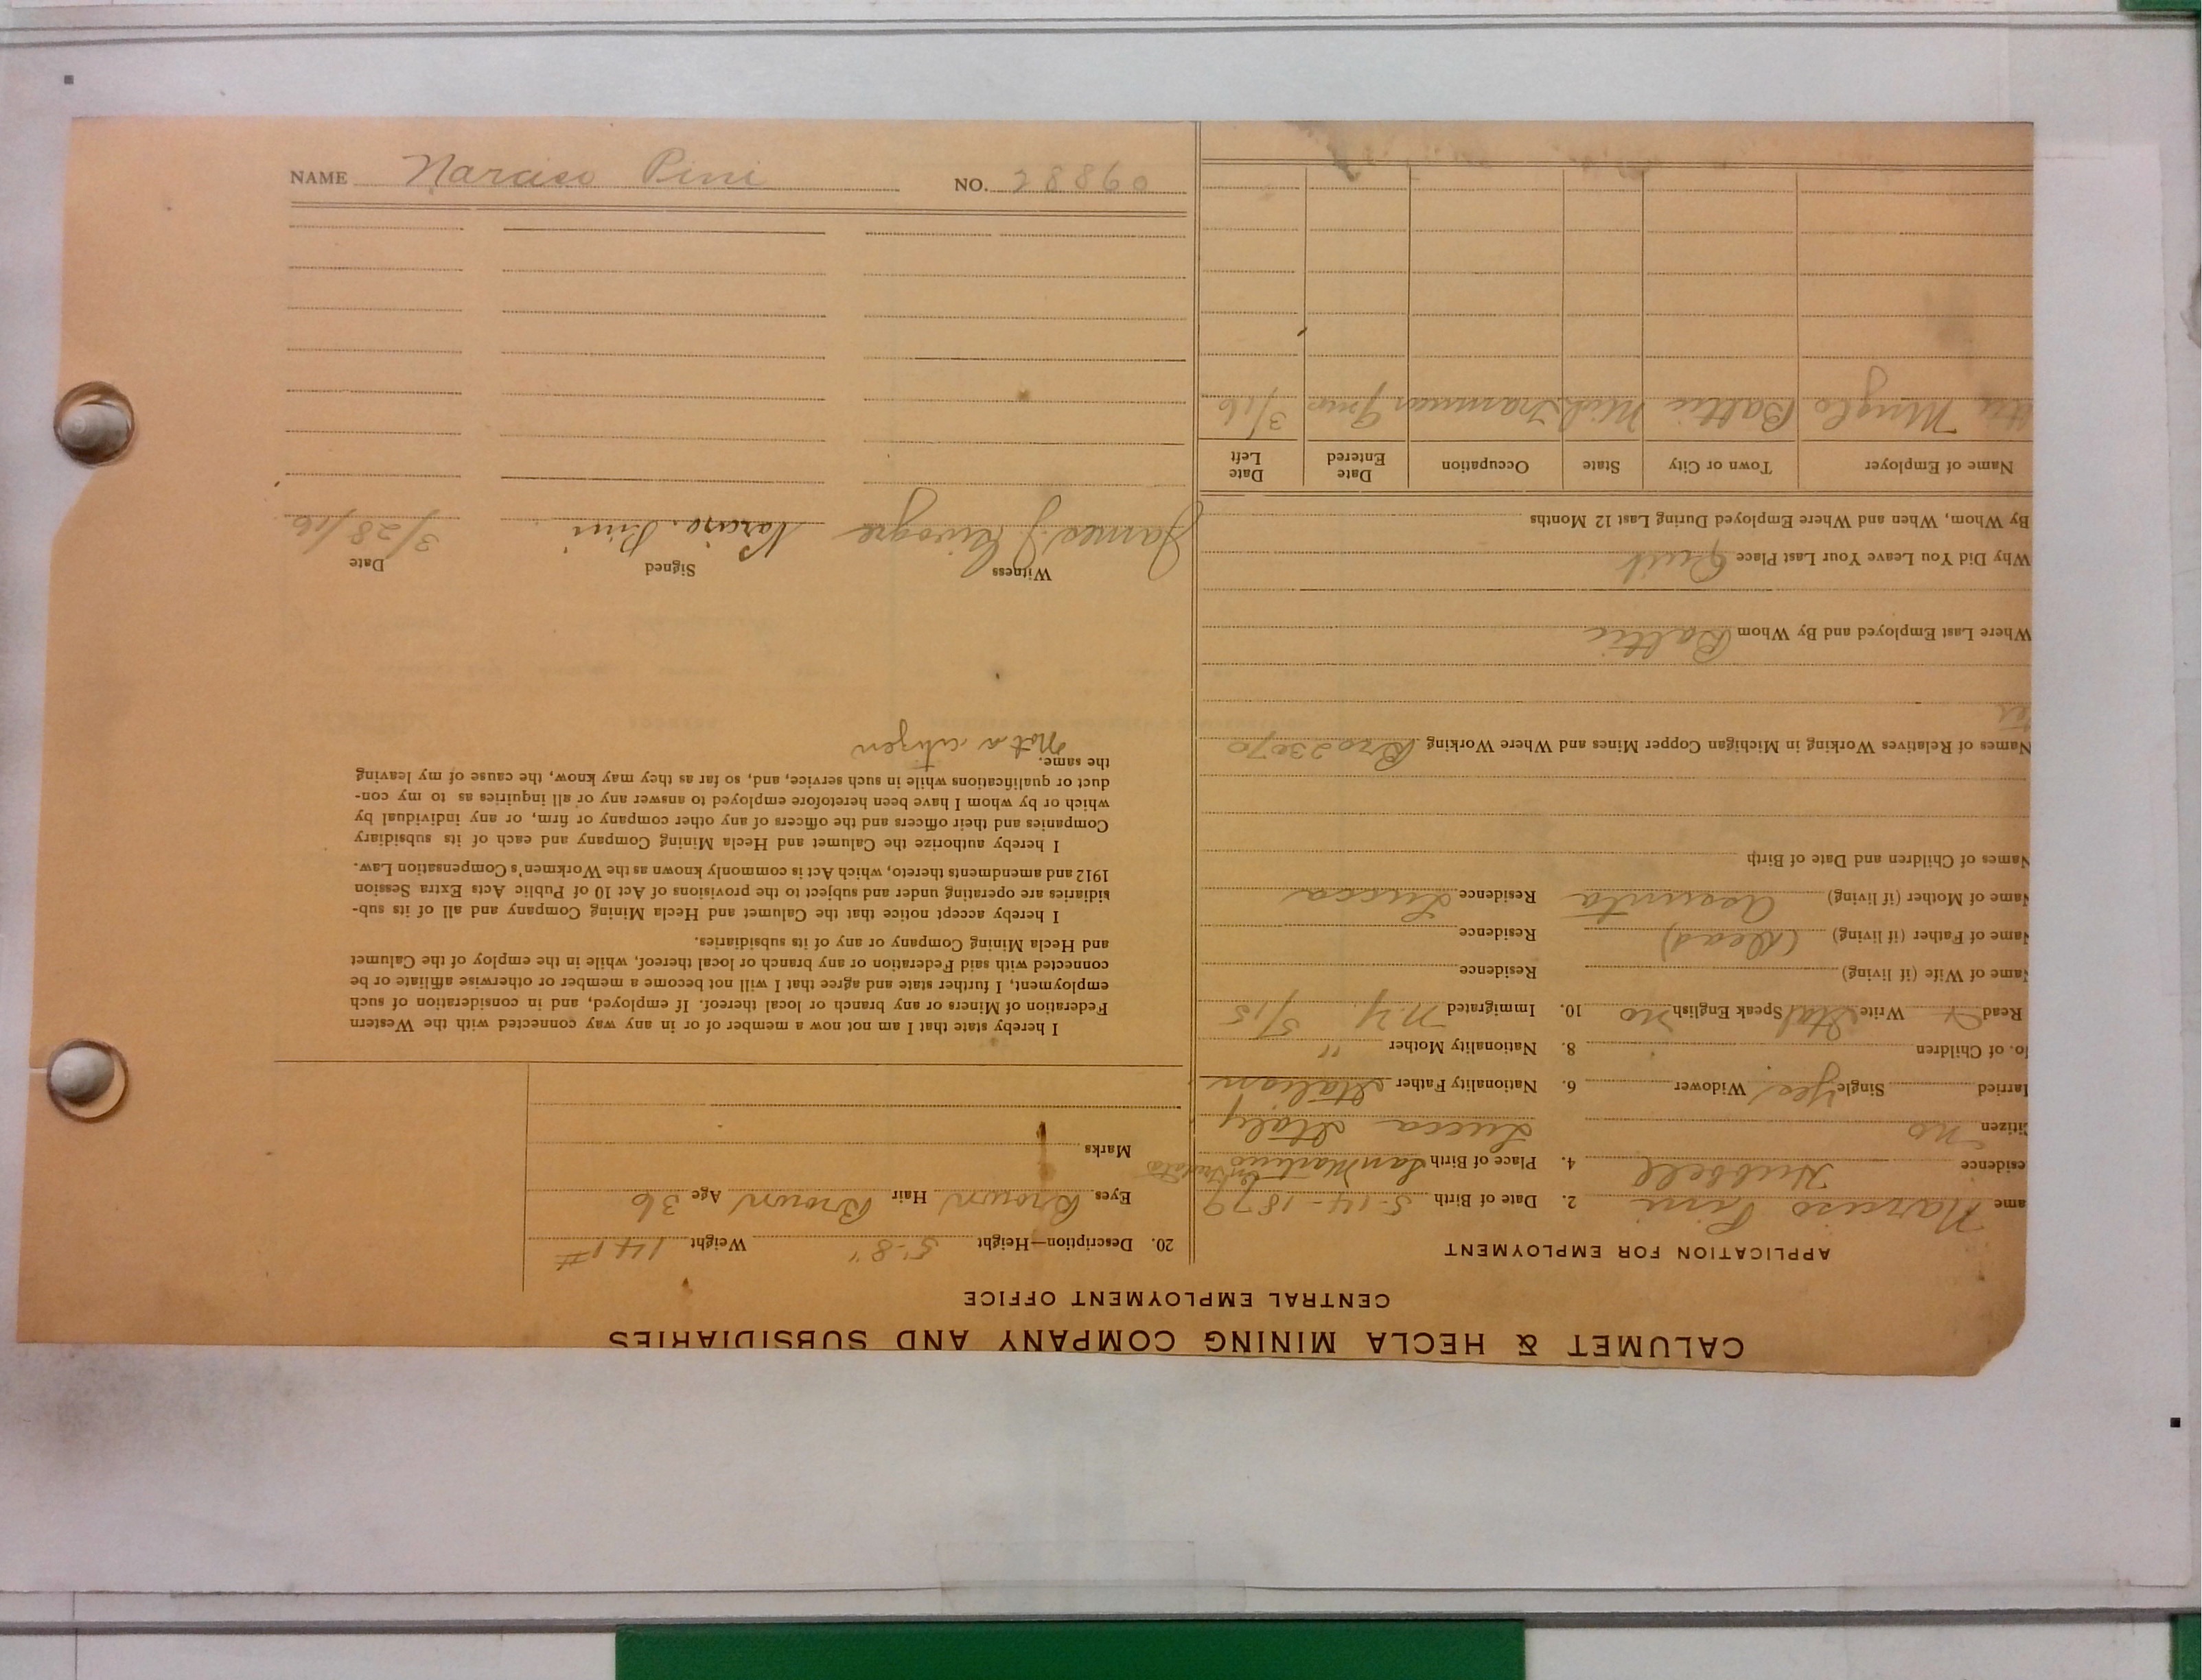 CALUMET & HECLA MINING COMPANY AND SUBSIDIARIES
CENTRAL EMPLOYMENT OFFICE
APPLICATION FOR EMPLOYMENT
ame Narciso Pini 2. Date of Birth 5-14-1879
esidence Hubbell 4. Place of Birth San Martino
Lucca Italy
itizen no
arried Single Yes Widower 6. Nationality Father Italian
o. of Children 8. Nationality Mother "
Read Write Ital Speak English no 10. Immigrated N.Y. 5/15
Name of Wife (if living) Residence
Name of Father (if living) (Dead) Residence
Name of Mother (if living) Assunta Residence Lucca
Names of Children and Date of Birth
Names of Relatives Working in Michigan Copper Mines and Where Working Bro 23070
Where Last Employed and By Whom Baltic
Why Did You Leave Your Last Place Quit
By Whom, When and Where Employed During Last 12 Months
Name of Employer Town or City State Occupation Date Entered Date Left
Baltic Mich Trammer 3/16
20. Description—Height 5-8" Weight 141#
Eyes Brown Hair Brown Age 36
Marks
I hereby state that I am not now a member of or in any way connected with the Western
Federation of Miners or any branch or local thereof. If employed, and in consideration of such
employment, I further state and agree that I will not become a member or otherwise affiliate or be
connected with said Federation or any branch or local thereof, while in the employ of the Calumet
and Hecla Mining Company or any of its subsidiaries.
I hereby accept notice that the Calumet and Hecla Mining Company and all of its sub-
sidiaries are operating under and subject to the provisions of Act 10 of Public Acts Extra Session
1912 and amendments thereto, which Act is commonly known as the Workmen's Compensation Law.
I hereby authorize the Calumet and Hecla Mining Company and each of its subsidiary
Companies and their officers and the officers of any other company or firm, or any individual by
which or by whom I have been heretofore employed to answer any or all inquiries as to my con-
duct or qualifications while in such service, and, so far as they may know, the cause of my leaving
the same.
Not a citizen
Witness Signed Date
James J Narciso Pini 3/28/16
NAME Narciso Pini NO. 28860